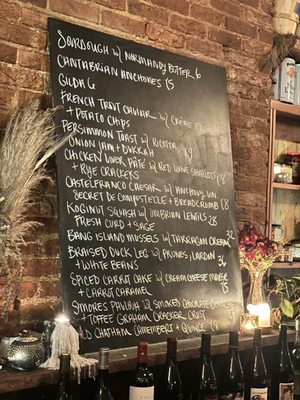 SOURDOUGH w/ NORMANDY BUTTER 6
CANTABRIAN ANCHOVIES 15
GILDA 6
FRENCH TROUT CAVIAR w/ CRÈME
+ POTATO CHIPS
PERSIMMON TOAST w/ RICOTTA
ONION JAM + DUKKAH 19
CHICKEN LIVER PÂTÉ w/ RED WINE SHALLOTS
+ RYE CRACKERS 18
CASTELFRANCO CAESAR w/ ANCHOVY, LEMON
SECRET DE COMPOSTELLE + BREADCRUMB 18
KOGINUT SQUASH w/ UMBRIAN LENTILS
FRESH CURD + SAGE 28
BANG ISLAND MUSSELS w/ TARRAGON CREAM 32
BRAISED DUCK LEG w/ PRUNES, LARDON 36
+ WHITE BEANS
SPICED CARROT CAKE w/ CREAM CHEESE MOUSSE
+ CARROT CARAMEL 15
SMOKES w/ SMOKED CHOCOLATE
+ TOFFEE GRAHAM CRACKER CRUST
OLD CHATHAM CAMEMBERT + QUINCE